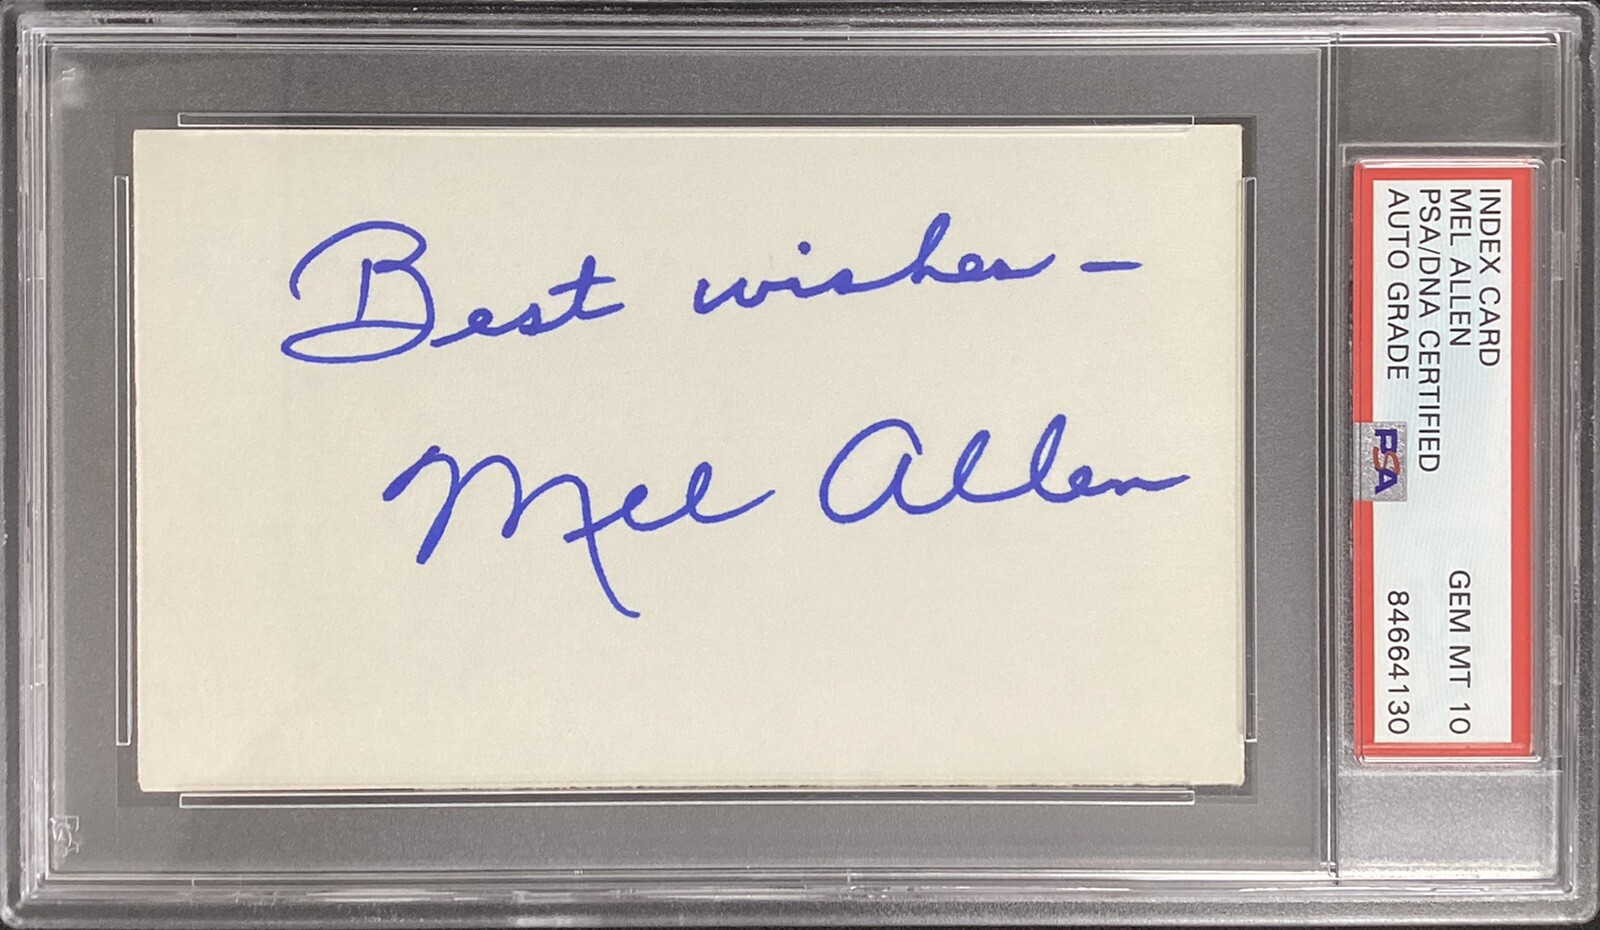 Best wishes –
Mel Allen
INDEX CARD
MEL ALLEN
PSA/DNA CERTIFIED
AUTO GRADE
GEM MT 10
84664130
PSA